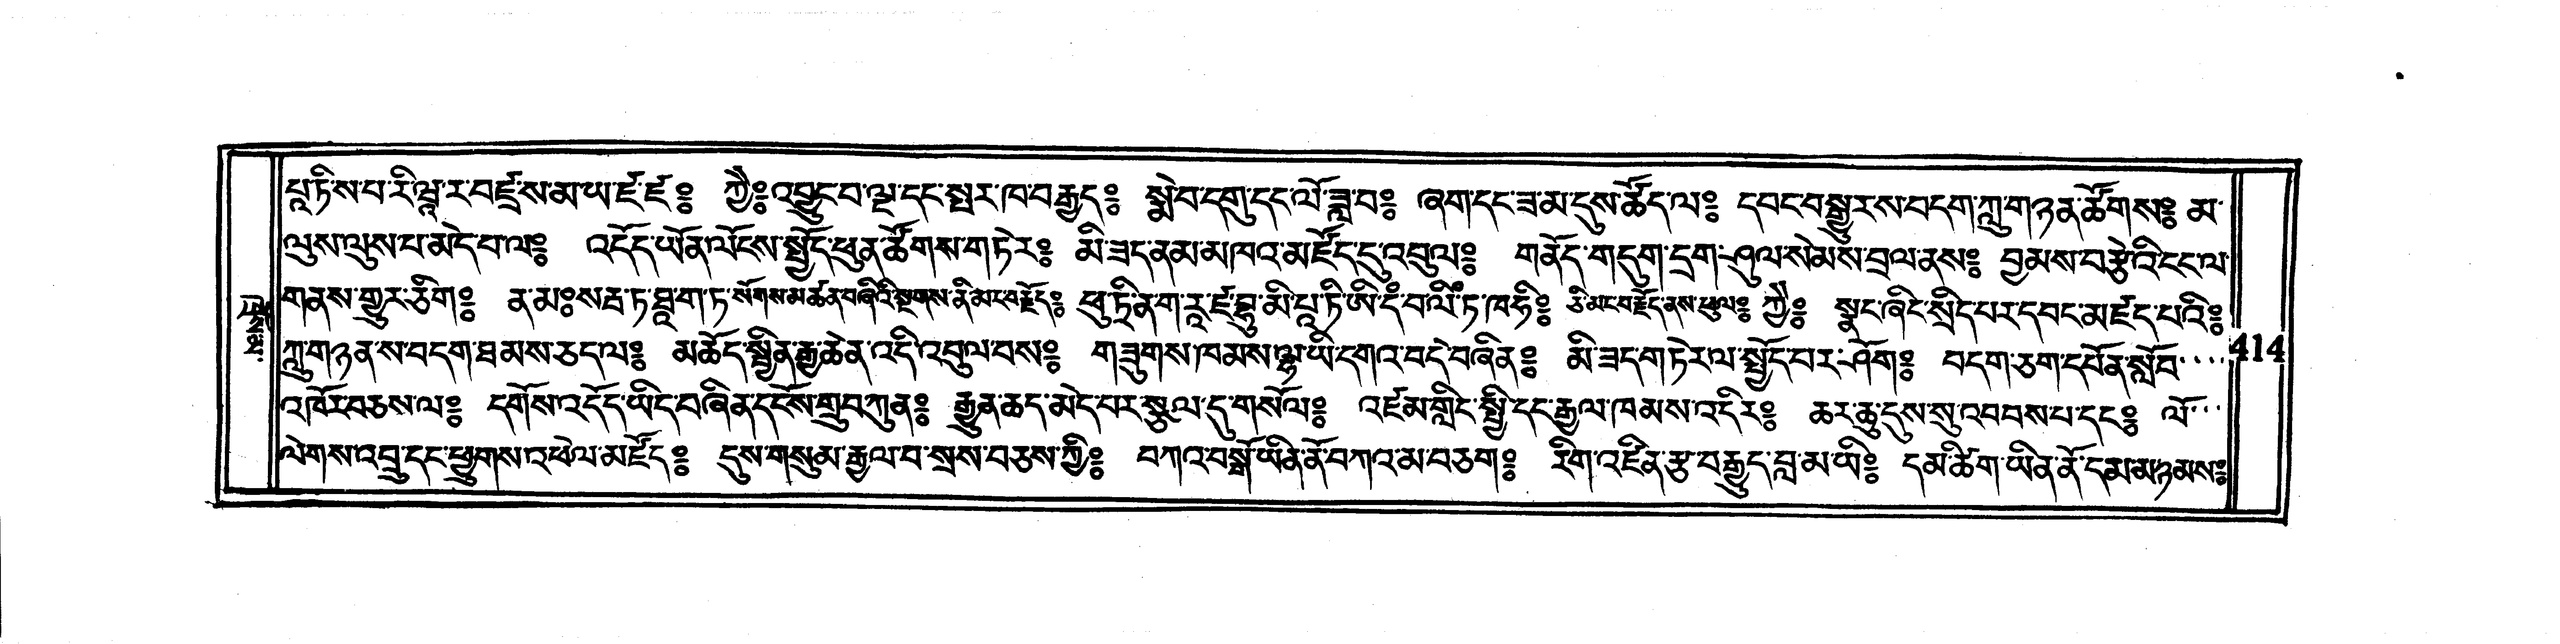 པྲ་ཏི་ས་པ་རི་ཝཱ་ར་བཛྲ་ས་མ་ཡ་ཛཿ་ཛཿ༔ ཀྱཻ༔ འབྱུང་བ་ལྔ་དང་སྤར་ཁ་བརྒྱད༔ སྨེ་བ་དགུ་དང་ལོ་ཟླ་བ༔ ཞག་དང་ཟ་མ་དུས་ཚོད་ལ༔ དབང་བསྒྱུར་ས་བདག་ཀླུ་གཉན་ཚོགས༔ མ་
ལུས་ལུས་པ་མེད་པ་ལ༔ འདོད་ཡོན་ལོངས་སྤྱོད་ཕུན་ཚོགས་གཏེར༔ མི་ཟད་ནམ་མཁའ་མཛོད་དུ་འབུལ༔ གནོད་གདུག་དྲག་ཤུལ་སེམས་བྲལ་ནས༔ བྱམས་བརྩེའི་ངང་ལ་
གནས་གྱུར་ཅིག༔ ན་མཿ་སརྦ་ཏ་ཐཱ་ག་ཏ་ སོགས་མཚན་བཞིའི་སྔགས་ནི་མང་བརྗོད༔ ཕུ་ཏྲིན་ག་རཱ་ཛཿ་བྷུ་མི་པྲ་ཏི་ཨི་དཾ་བ་ལིཾ་ཏ་ཁ་ཧི༔ ཅི་མང་བརྗོད་ནས་ཕུལ༔ ཀྱཻ༔ སྣང་ཞིང་སྲིད་པར་དབང་མཛད་པའི༔
ཀླུ་གཉན་ས་བདག་ཐམས་ཅད་ལ༔ མཆོད་སྦྱིན་རྒྱ་ཆེན་འདི་འབུལ་བས༔ གཟུགས་ཁམས་ལྷ་ཡི་དགའ་བདེ་བཞིན༔ མི་ཟད་གཏེར་ལ་སྤྱོད་པར་ཤོག༔ བདག་ཅག་དཔོན་སློབ་····
འཁོར་བཅས་ལ༔ དགོས་འདོད་ཡིད་བཞིན་དངོས་གྲུབ་ཀུན༔ རྒྱུན་ཆད་མེད་པར་སྩལ་དུ་གསོལ༔ འཛམ་གླིང་སྤྱི་དང་རྒྱལ་ཁམས་འདིར༔ ཆར་ཆུ་དུས་སུ་འབབས་པ་དང༔ ལོ་···
ལེགས་འབྲུ་དང་ཕྱུགས་འཕེལ་མཛོད༔ དུས་གསུམ་རྒྱལ་བ་སྲས་བཅས་ཀྱི༔ བཀའ་བསྒོ་ཡིན་ནོ་བཀའ་མ་བཅག༔ རིག་འཛིན་རྩ་བརྒྱུད་བླ་མ་ཡི༔ དམ་ཚིག་ཡིན་ནོ་དམ་མ་ཉམས༔
414